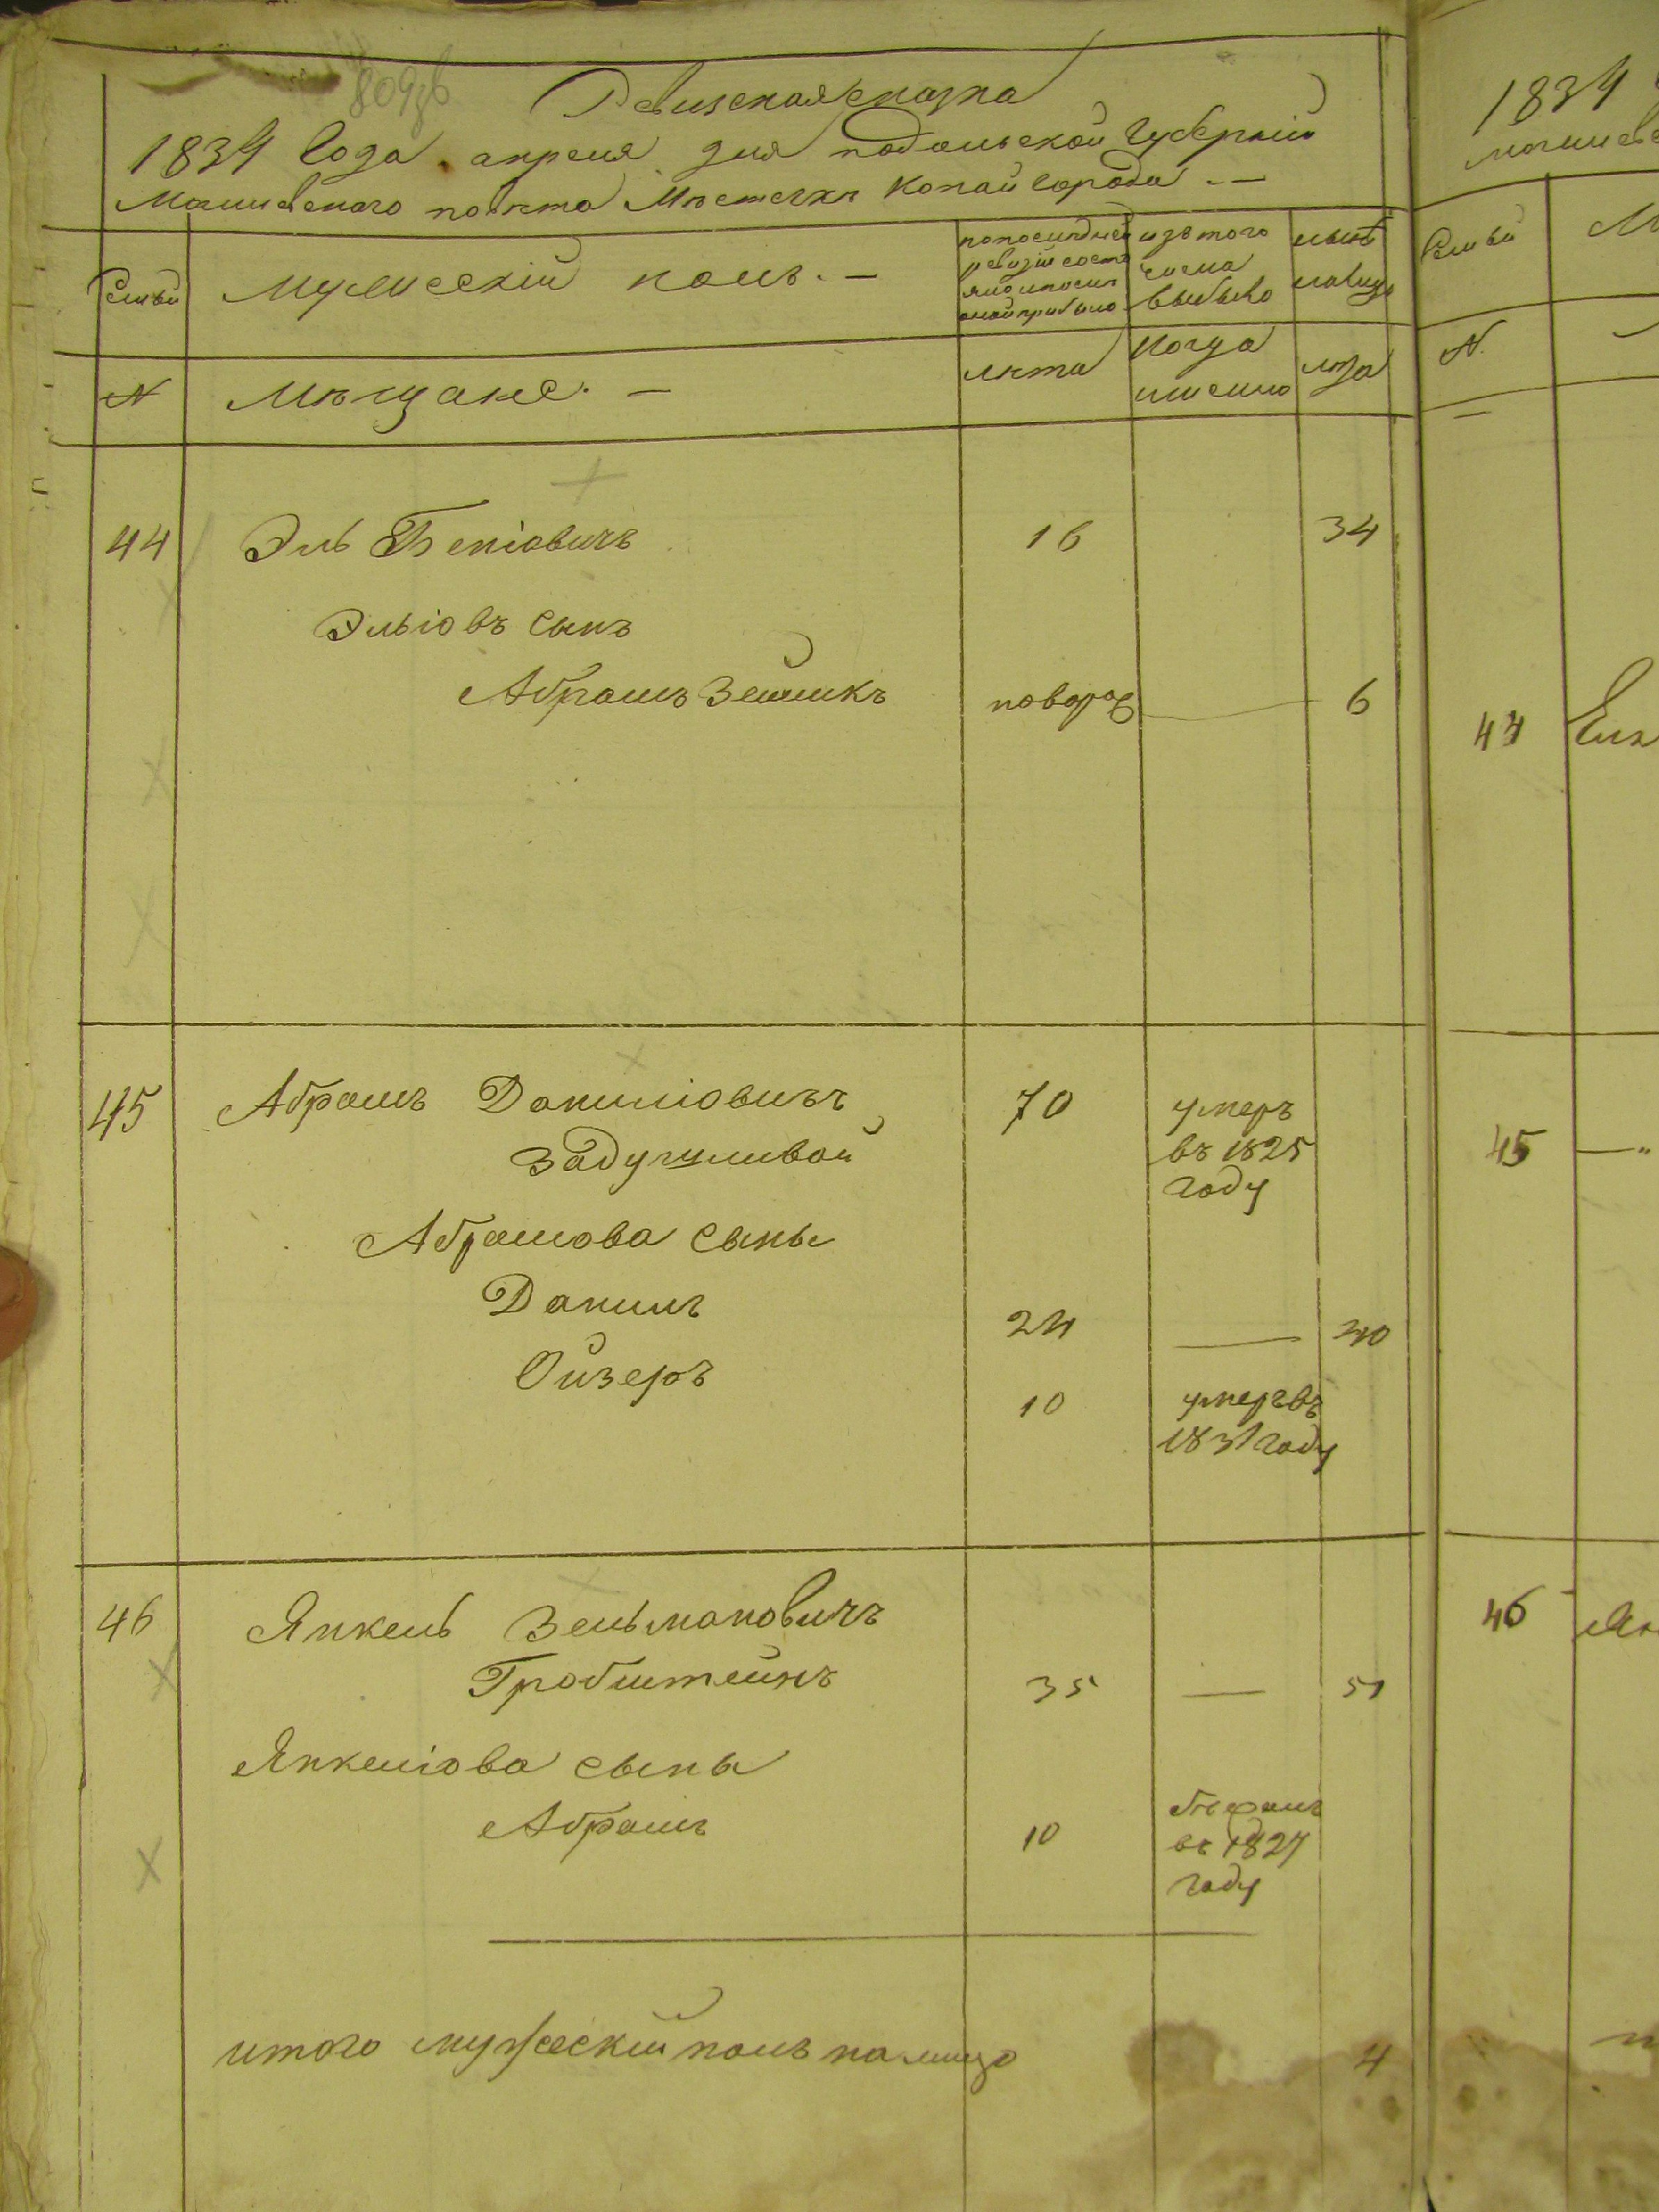 809
Ревизская сказка
1834 Года апреля дня подольской Губернiи
Могилевского повѣта Мѣстечкѣ Копай города. —
Семьи
Мужескiй полъ. —
по последней
ревизiи состо
яло и после
оной прибыло
изъ того
числа
выбыло
нынѣ
налицо
N
Мѣщане. —
лѣта
Когда
именно
лѣта
44
Эль Беніовичъ
16
34
Эльіовъ сынъ
Абрамъ Зейликъ
новорож
6
45
Абрамъ Даниліовичъ
70
умеръ
въ 1825
году
Абрамова сыны
Данилъ
24
—
40
Ойзеръ
10
умеръ въ
1831 году
46
Янкель Зельмановичъ
Гробштейнъ
35
—
51
Янкеліова сыны
Абрамъ
10
въ 1827
году
итого мужескiй полъ налицо
4
1834
Семьи
N.
44
45
46